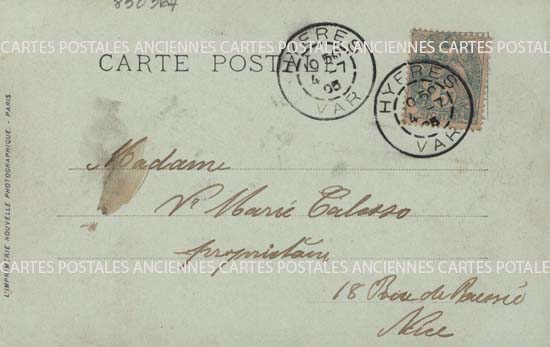 850364
CARTE POSTALE
HYERES
4
05
VAR
HYERES
4
05
VAR
Madame
Vve Marie Calosso
propriétaire
18 Rue de
Nice
L'IMPRIMERIE NOUVELLE PHOTOGRAPHIQUE - PARIS
CARTES POSTALES ANCIENNES CARTES POSTALES ANCIENNES CARTES POTALES
CARTES POSTALES ANCIENNES CARTES POSTALES ANCIENNES CARTES POTALES